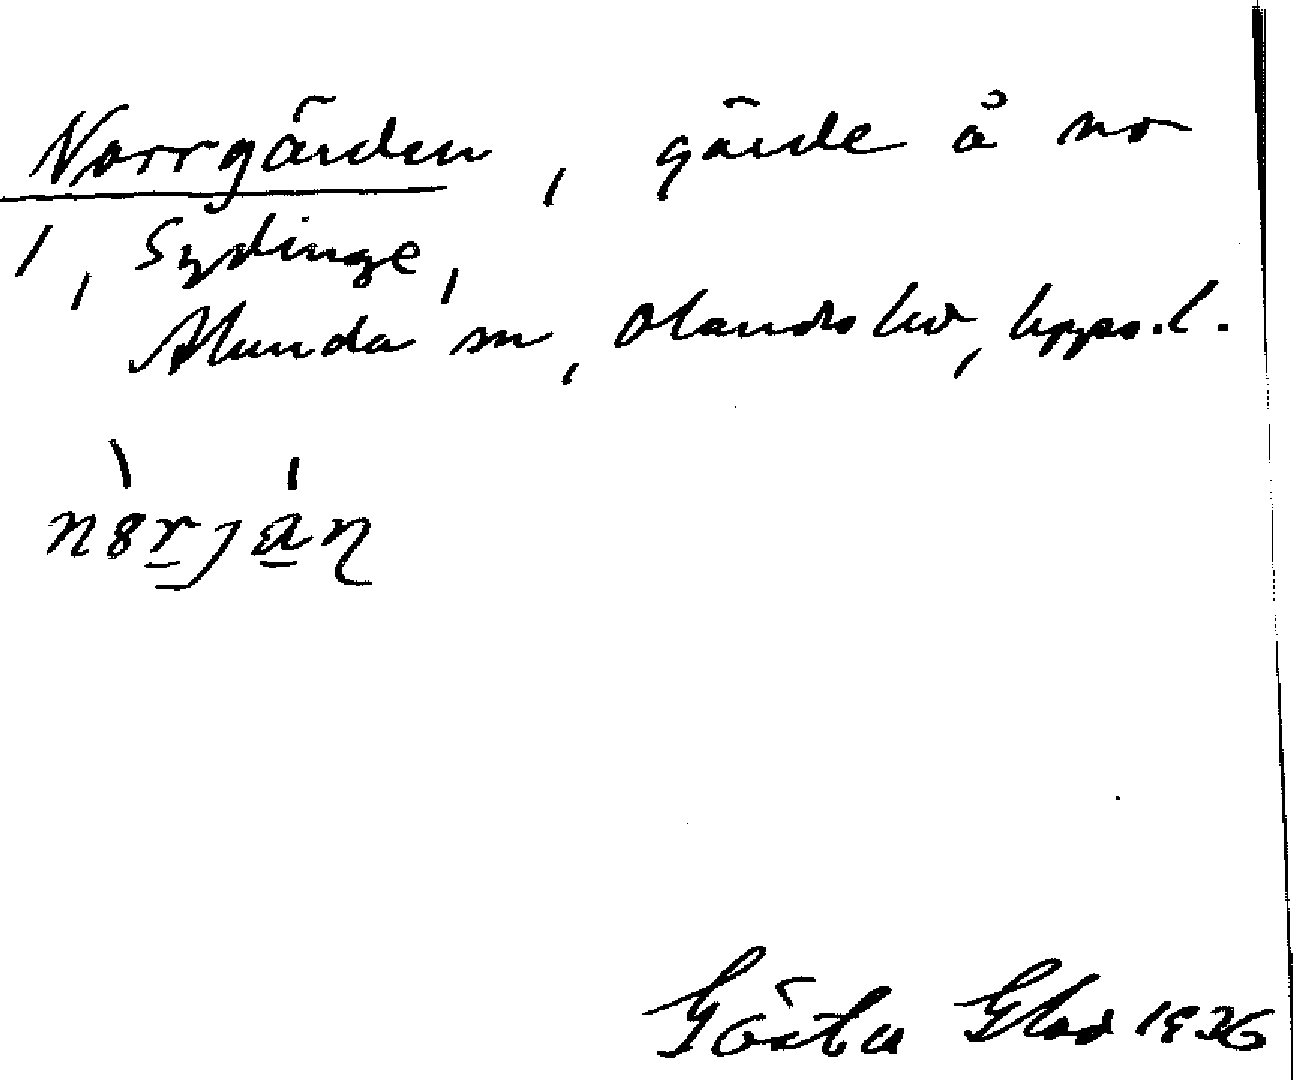 Norrgärden, gärde å nr
1, Sydinge,
Alunda sn, Olands hd, Upps.l.
Gösta Glad 1936